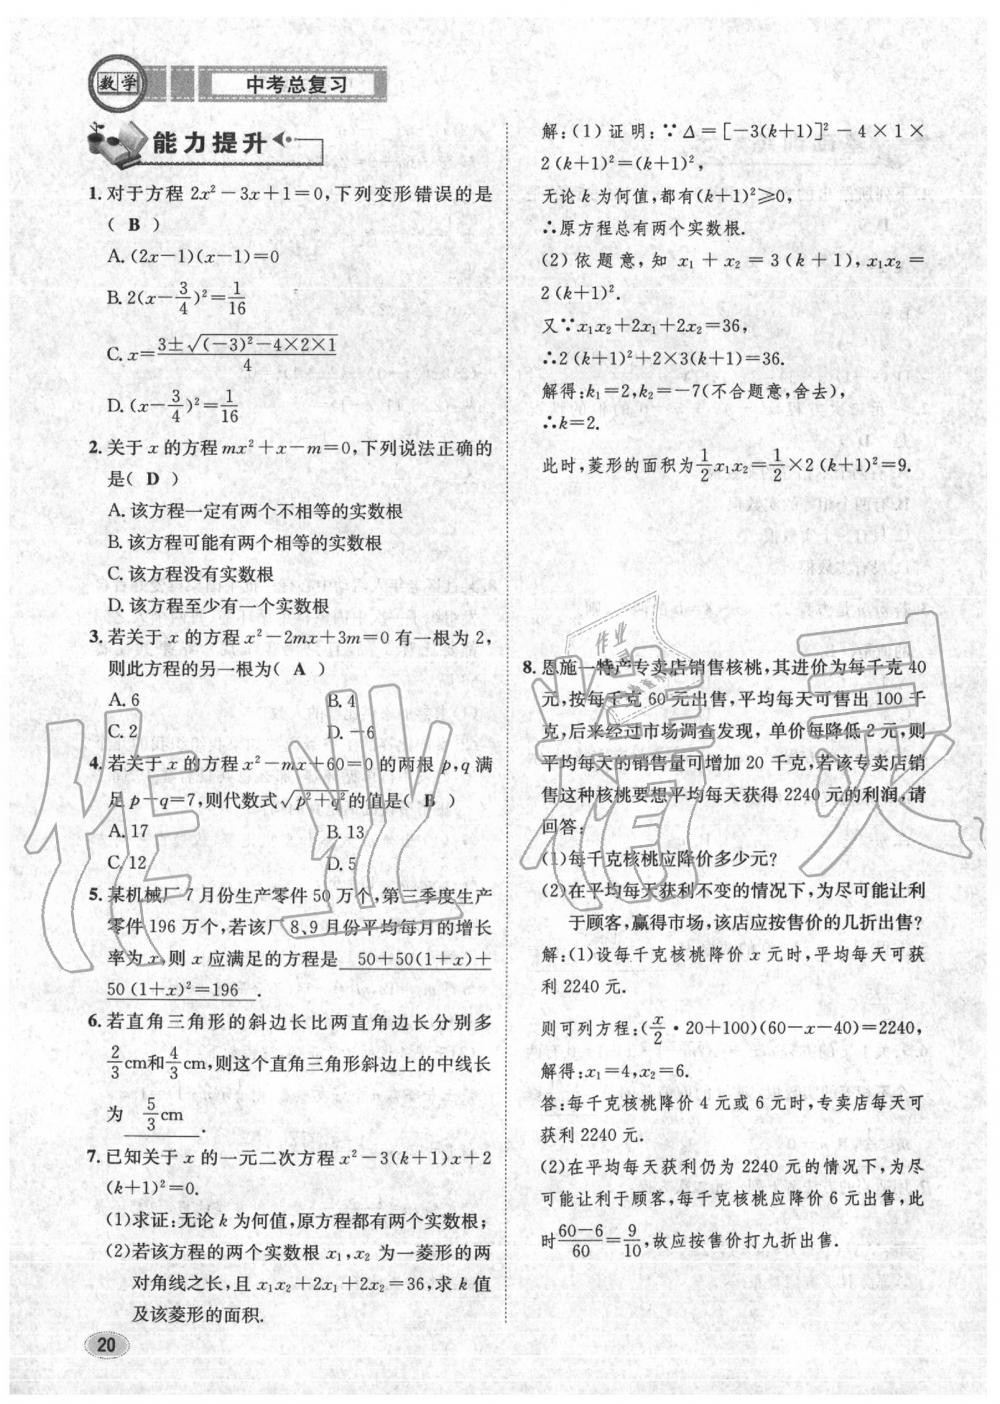 数学
中考总复习
能力提升
1. 对于方程 2x²-3x+1=0,下列变形错误的是
( B )
A. (2x-1)(x-1)=0
B. 2(x-3/4)²=1/16
C. x=(3±√((-3)²-4×2×1))/4
D. (x-3/4)²=1/16
2. 关于 x 的方程 mx²+x-m=0,下列说法正确的
是( D )
A. 该方程一定有两个不相等的实数根
B. 该方程可能有两个相等的实数根
C. 该方程没有实数根
D. 该方程至少有一个实数根
3. 若关于 x 的方程 x²-2mx+3m=0 有一根为 2,
则此方程的另一根为( A )
A. 6 B. 4
C. 2 D. -6
4. 若关于 x 的方程 x²-mx+60=0 的两根 p,q 满
足 p-q=7,则代数式√(p²+q²)的值是( B )
A. 17 B. 13
C. 12 D. 5
5. 某机械厂 7 月份生产零件 50 万个,第三季度生产
零件 196 万个,若该厂 8、9 月份平均每月的增长
率为 x,则 x 应满足的方程是 50+50(1+x)+
50(1+x)²=196 .
6. 若直角三角形的斜边长比两直角边长分别多
2/3 cm和 4/3 cm,则这个直角三角形斜边上的中线长
为 5/3 cm .
7. 已知关于 x 的一元二次方程 x²-3(k+1)x+2
(k+1)²=0.
(1)求证:无论 k 为何值,原方程都有两个实数根;
(2)若该方程的两个实数根 x₁,x₂ 为一菱形的两
对角线之长,且 x₁x₂+2x₁+2x₂=36,求 k 值
及该菱形的面积.
20
解:(1)证明:∵Δ=[-3(k+1)]²-4×1×
2(k+1)²=(k+1)²,
无论 k 为何值,都有(k+1)²≥0,
∴原方程总有两个实数根.
(2)依题意,知 x₁+x₂=3(k+1),x₁x₂=
2(k+1)².
又∵x₁x₂+2x₁+2x₂=36,
∴2(k+1)²+2×3(k+1)=36.
解得:k₁=2,k₂=-7(不合题意,舍去),
∴k=2.
此时,菱形的面积为1/2 x₁x₂=1/2×2(k+1)²=9.
8. 恩施一特产专卖店销售核桃,其进价为每千克 40
元,按每千克 60 元出售,平均每天可售出 100 千
克,后来经过市场调查发现,单价每降低 2 元,则
平均每天的销售量可增加 20 千克,若该专卖店销
售这种核桃要想平均每天获得 2240 元的利润,请
回答:
(1)每千克核桃应降价多少元?
(2)在平均每天获利不变的情况下,为尽可能让利
于顾客,赢得市场,该店应按售价的几折出售?
解:(1)设每千克核桃降价 x 元时,平均每天可获
利 2240 元.
则可列方程:(x/2·20+100)(60-x-40)=2240,
解得:x₁=4,x₂=6.
答:每千克核桃降价 4 元或 6 元时,专卖店每天可
获利 2240 元.
(2)在平均每天获利仍为 2240 元的情况下,为尽
可能让利于顾客,每千克核桃应降价 6 元出售,此
时(60-6)/60=9/10,故应按售价打九折出售.
作业精灵